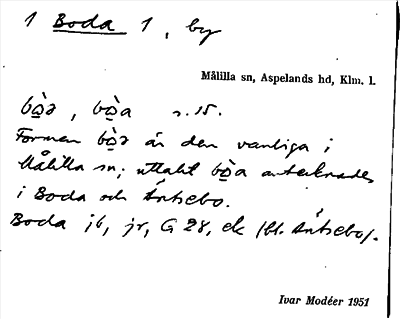 1 Boda 1, by
Målilla sn, Aspelands hd, Klm. l.
bò̱ə, bò̱a s. 15.
Formen bò̱ə är den vanliga i
Målilla sn; uttalet bò̱a antecknades
i Boda och Äntsebo.
Boda jb, jr, G 28, ek (bl. Äntsebo).
Ivar Modéer 1951